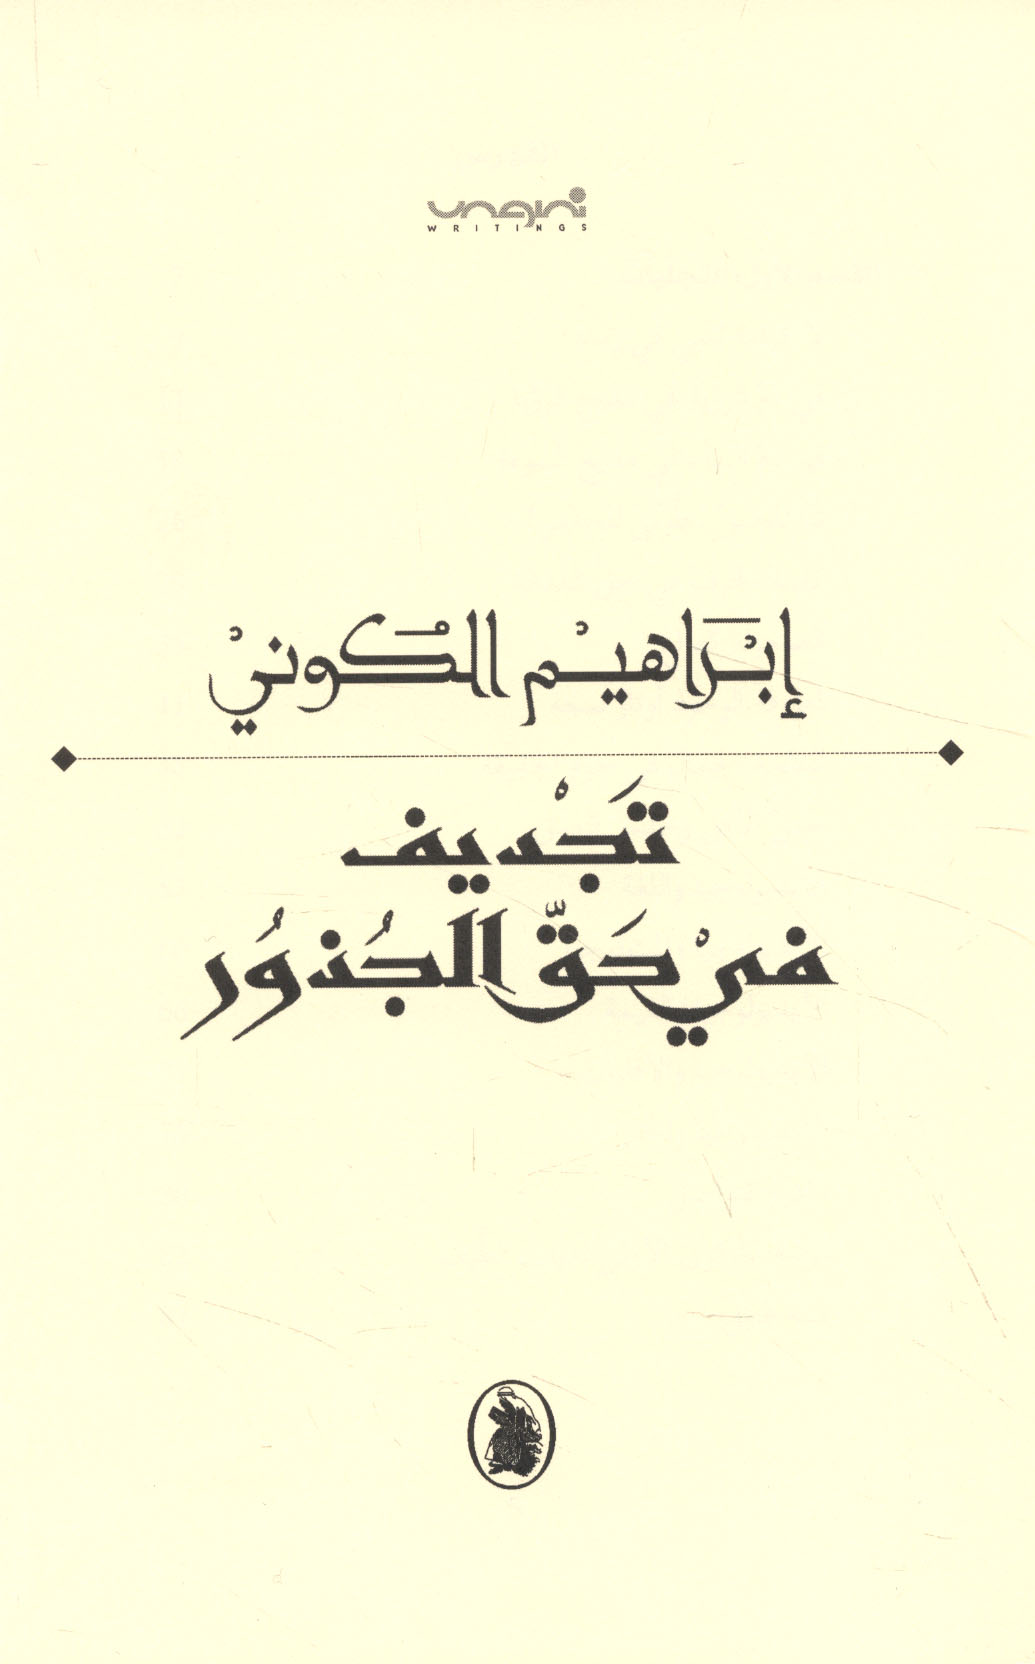 نصوص
WRITINGS
إِبْرَاهِيْم الكُونيْ
تَجْديف
فيْ حَقِّ الجُذوُر